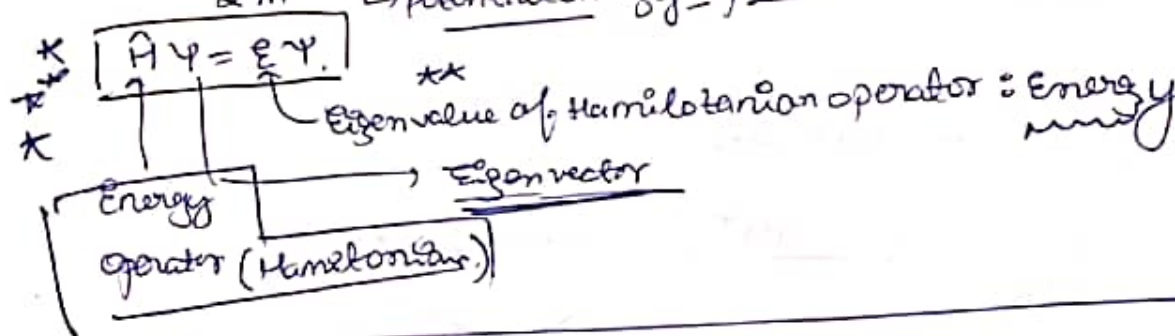 * Ĥψ = Eψ.
** Eigenvalue of Hamilotanian operator : Energy
Eigenvector
Energy
operator (Hamiltonian.)